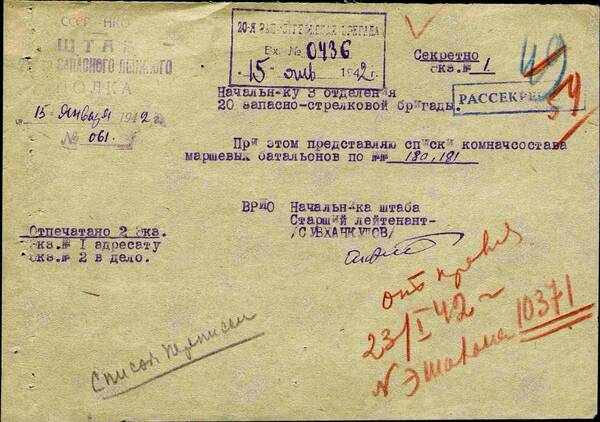 СССР-НКО
ШТАБ
ЗАПАСНОГО ЛЫЖНОГО
ПОЛКА
15 января 1942 г
№ 061.
20-Я ЗАП-СТРЕЛКОВАЯ БРИГАДА
Вх. № 0436
15 янв 1942 г.
Секретно
экз.№ 1.
49
54
РАССЕКРЕ
Начальн-ку 3 отделения
20 запасно-стрелковой бригады.
При этом представляю списки комначсостава
маршевых батальонов по №№ 180, 181
ВРИО Начальника штаба
Старший лейтенант-
/СУВХАНКУЛОВ/
Отпечатано 2 экз.
экз.№ I адресату
экз.№ 2 в дело.
Список переписан
23/I 42 г
№ Эшалона 10371